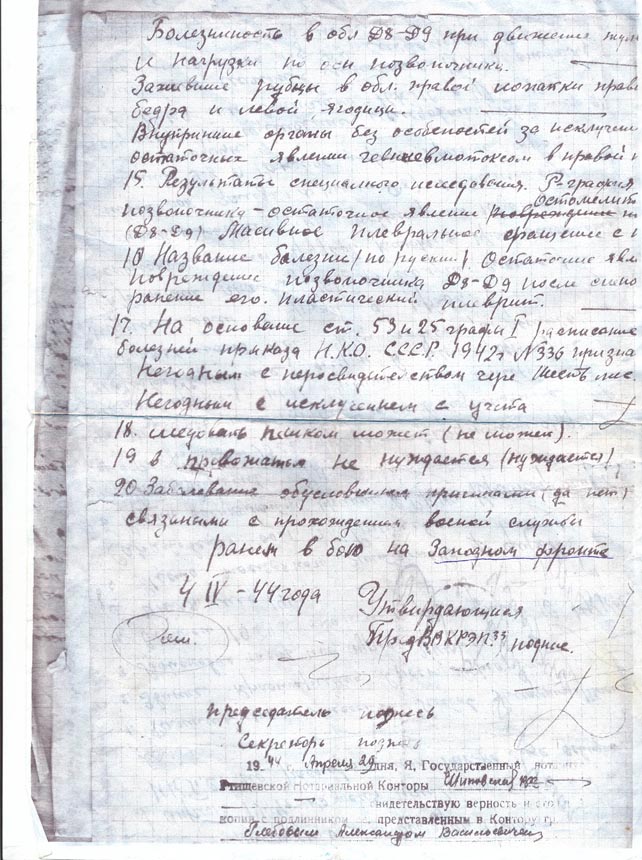 Болезнность в обл D8-D9 при движение
и нагрузки по оси позвоночника.
Зажившие рубцы в обл. правой лопатки
бедра и левой ягодици.
Внутринние органы без особеностей за исключ
остаточных явлении в правой
15. Результаты специалного иследования. Р-графия
Остомелит
позвоночника-остаточное явлении
(D8-D9) Масивное плевральное сращение с
16 Название болезни (по руский). Остаточние явл
повреждение позвоночника D8-D9 после
ранение его. Пластический плеврит.
17. На основание ст. 53 и 25 графы I расписание
болезней приказа Н.К.О. С.С.С.Р. 1942г N336 призна
Негодным с переосвидетельством чере шесть мес.
Негодным с исключением с учета
18. следовать пешком может (не может).
19 в провожатом не нуждается (нуждается)
20 Заболевание обусловленна причинами (да нет)
связиными с прохождением военой службы
ранен в бою на Западном фронте
4 IV-44 года
Утвирдающися
Пред подпис.
председатель подпесь
Секреторь подпсь
19 44 г. Апреля 29 дня, Я, Государственный нотариус
Ртищевской Нотариальной Конторы
свидетельствую верность
копии с подлинником ее, представленным в Контору гр.
Глебовым Александром Васильевичем